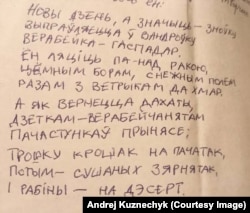 НОВЫ ДЗЕНЬ, А ЗНАЧЫЦЬ – ЗНОЎКУ
ВЫПРАЎЛЯЕЦЦА Ў ВАНДРОЎКУ
ВЕРАБЕЙКА-ГАСПАДАР.
ЁН ЛЯЦІЦЬ ПА-НАД РАКОЮ,
ЦЁМНЫМ БОРАМ, СНЕЖНЫМ ПОЛЕМ
РАЗАМ З ВЕТРЫКАМ ДА ХМАР.
А ЯК ВЕРНЕЦЦА ДАХАТЫ,
ДЗЕТКАМ-ВЕРАБЕЙЧАНЯТАМ
ПАЧАСТУНКАЎ ПРЫНЯСЕ;
ТРОШКУ КРОШАК НА ПАЧАТАК,
ПОТЫМ – СУШАНЫХ ЗЯРНЯТАК,
І РАБІНЫ – НА ДЭСЕРТ.
Andrej Kuznechyk (Courtesy Image)